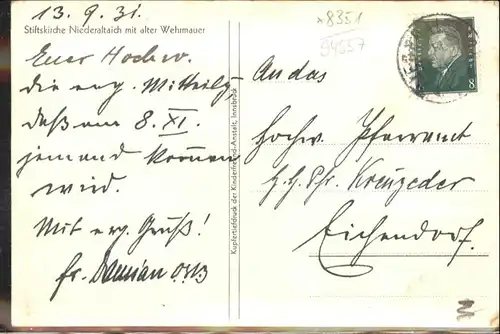 13.9.31.
Stiftskirche Niederaltaich mit alter Wehrmauer
Euer Hochw.
die erg. Mitteilg
daß am 8. XI.
jemand kommen
wird.
Mit erg. Gruß!
fr. Damian OSB
Kupfertiefdruck der Kinderfreund-Anstalt, Innsbruck
*8351
94557
8
An das
Hochw. Pfarramt
H. H. Pfr. Kreuzeder
Eichendorf.